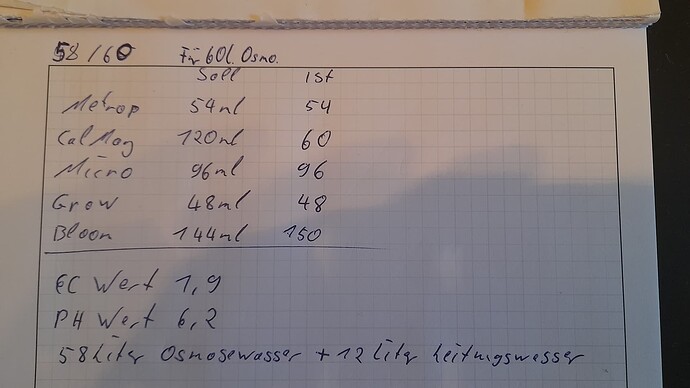 58/60 Für 60l. Osmo.
Soll Ist
Metrop 54ml 54
CalMag 120ml 60
Micro 96ml 96
Grow 48ml 48
Bloom 144ml 150
EC Wert 1,9
PH Wert 6,2
58 Liter Osmosewasser + 12 Liter Leitungswasser